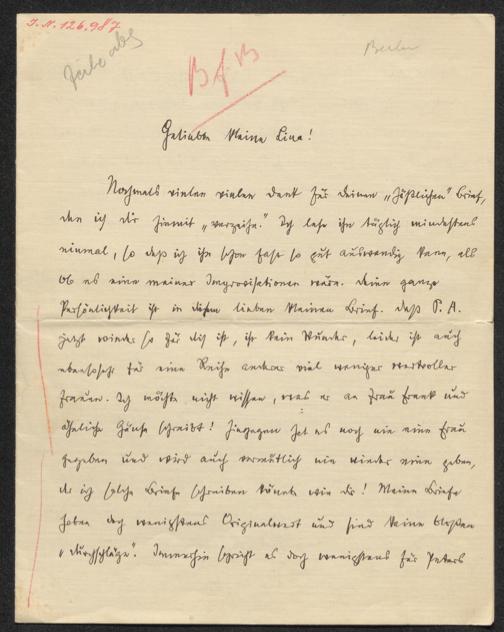 J. N. 126.987
B f B
Berlin
Geliebte kleine Lina!
Nochmals vielen vielen Dank für Deinen „häßlichen" Brief,
den ich Dir hiermit „verzeihe." Ich lese ihn täglich mindestens
einmal, so daß ich ihn schon fast so gut auswendig kann, als
ob es eine meiner Improvisationen wäre. Deine ganze
Persönlichkeit ist in diesem lieben kleinen Brief. Daß P. A.
jetzt wieder so für Dich ist, ist kein Wunder, leider ist er auch
ebensosehr für eine Reihe anderer viel weniger wertvoller
Frauen. Ich möchte nicht wissen, was er an Frau Frank und
ähnliche Gänse schreibt! Hingegen hat es noch nie eine Frau
gegeben und wird auch vermutlich nie wieder eine geben,
der ich solche Briefe schreiben könnte wie Dir! Meine Briefe
haben doch wenigstens Originalwert und sind keine bloßen
„Durchschläge". Immerhin spricht es doch wenigstens für Peters